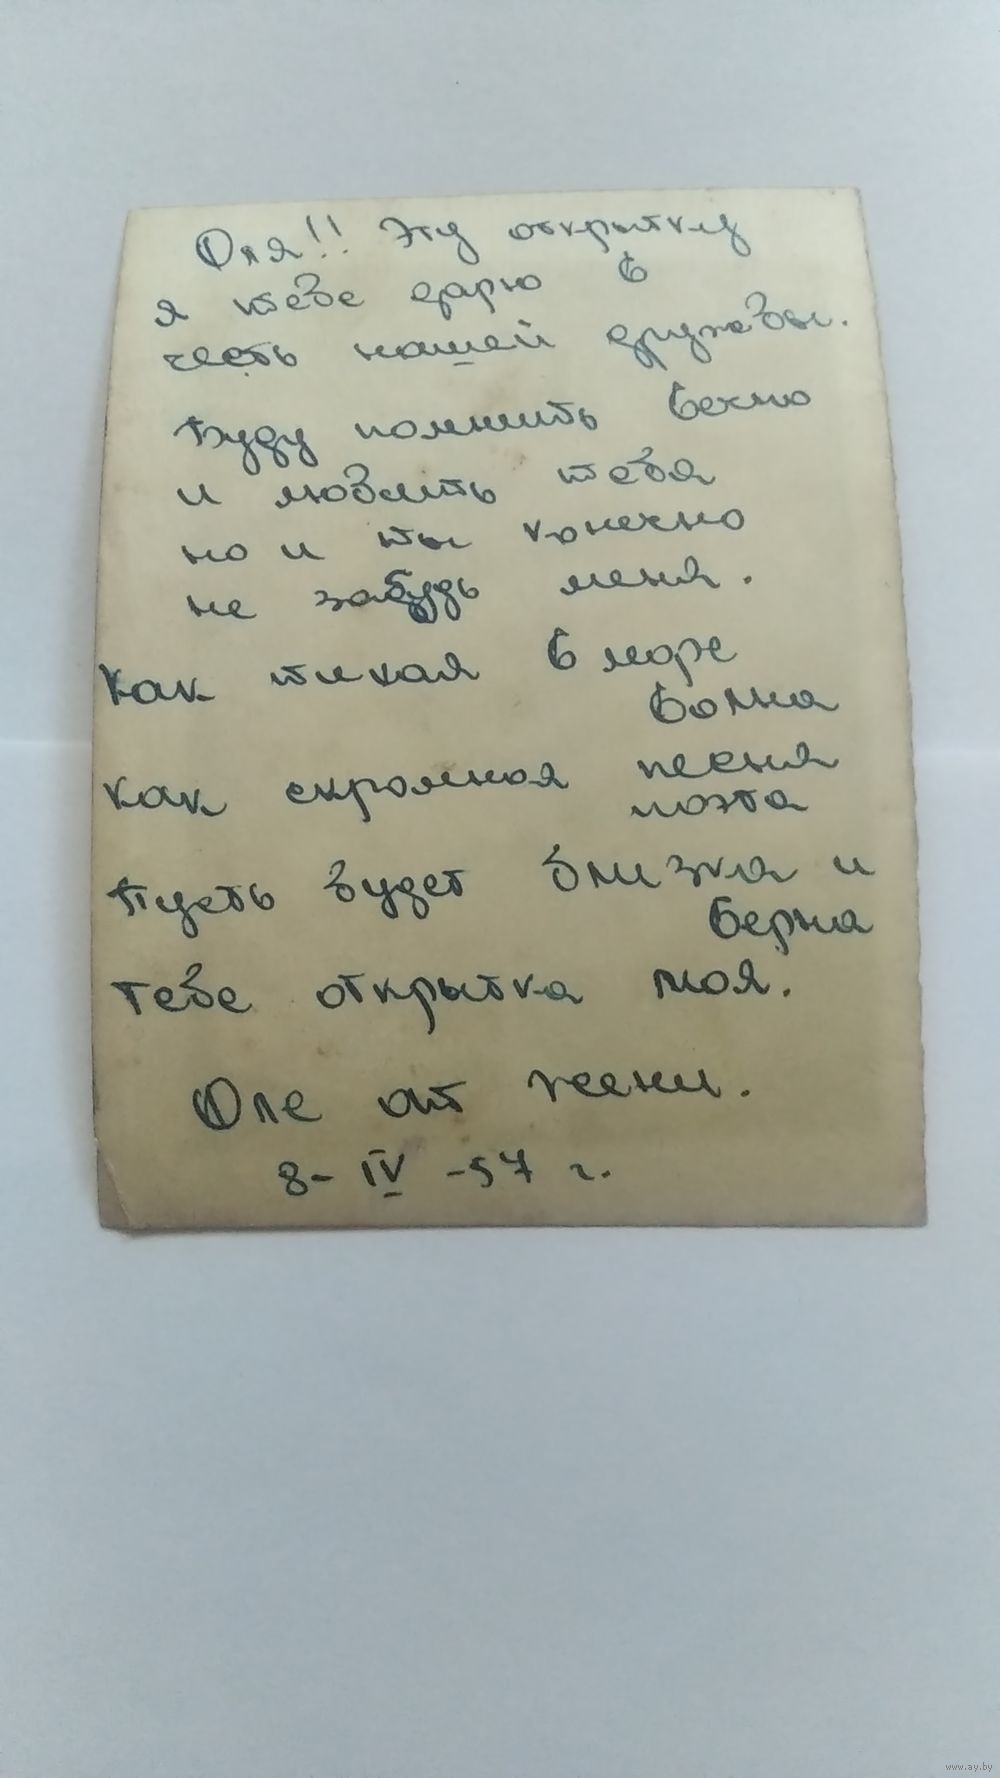 Оля!! Эту открытку
я тебе дарю в
честь нашей дружбы.
Буду помнить вечно
и любить тебя
но и ты конечно
не забудь меня.
Как тихая в море
волна
Как скромная песня
поэта
Пусть будет близка и
верна
Тебе открытка моя.
Оле от жени.
8- IV -57 г.
www.ay.by